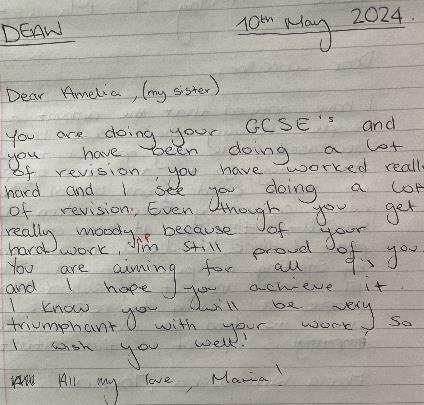 DEAW
10th May 2024.
Dear Amelia, (my sister)
You are doing your GCSE's and
you have been doing a lot
of revision, you have worked reall
hard and I see you doing a lot
of revision. Even though you get
really moody because of your
hard work, I'm still proud of you
You are aiming for all 9's
and I hope you achieve it.
I know you will be very
triumphant with your work, so
I wish you well!
All my love, Maria!